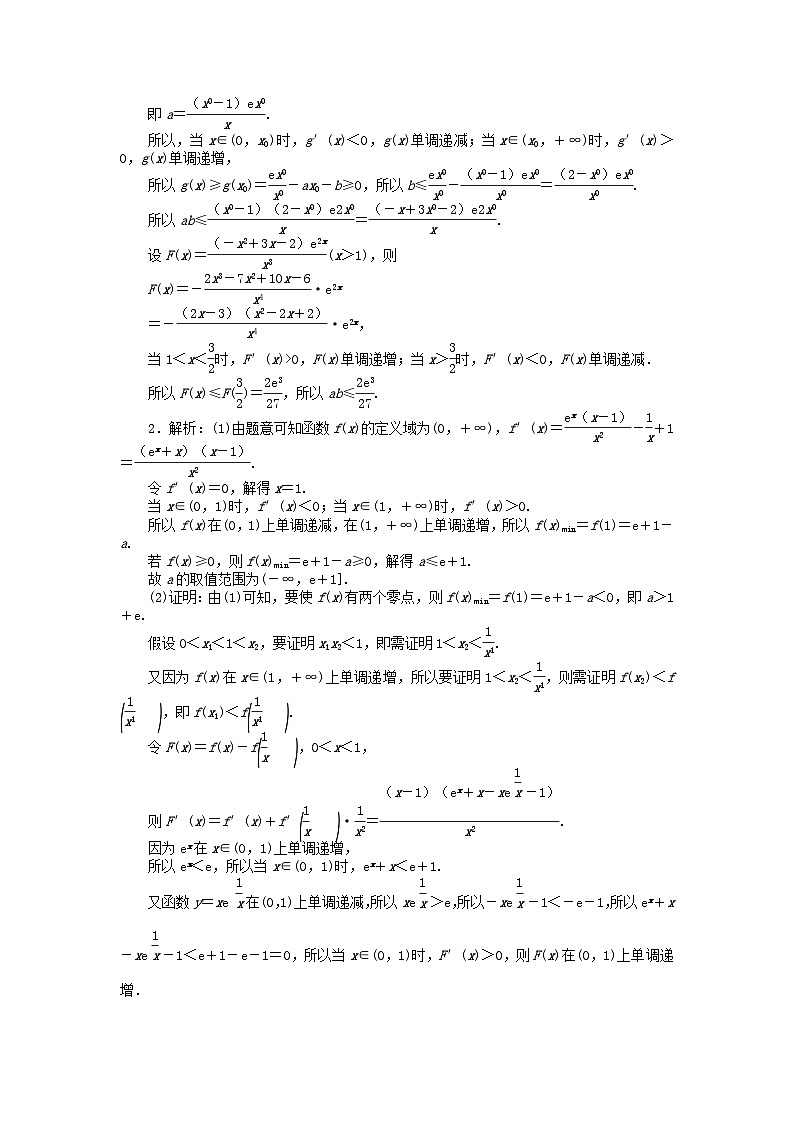 即 a＝(x0－1)ex0/x.
所以,当 x∈(0,x₀)时,g′(x)＜0,g(x)单调递减;当 x∈(x₀,＋∞)时,g′(x)＞
0,g(x)单调递增,
所以 g(x)≥g(x₀)＝ex0/x0－ax₀－b≥0,所以 b≤ex0/x0－(x0－1)ex0/x0＝(2－x0)ex0/x0.
所以 ab≤(x0－1)(2－x0)e2x0/x＝(－x＋3x0－2)e2x0/x.
设 F(x)＝(－x²＋3x－2)e²ˣ/x³(x＞1),则
F(x)＝－2x³－7x²＋10x－6/x⁴·e²ˣ
＝－(2x－3)(x²－2x＋2)/x⁴·e²ˣ,
当 1＜x＜3/2时,F′(x)>0,F(x)单调递增;当 x＞3/2时,F′(x)＜0,F(x)单调递减.
所以 F(x)≤F(3/2)＝2e³/27,所以 ab≤2e³/27.
2.解析:(1)由题意可知函数 f(x)的定义域为(0,＋∞),f′(x)＝eˣ(x－1)/x²－1/x＋1
＝(eˣ＋x)(x－1)/x².
令 f′(x)＝0,解得 x＝1.
当 x∈(0,1)时,f′(x)＜0;当 x∈(1,＋∞)时,f′(x)＞0.
所以 f(x)在(0,1)上单调递减,在(1,＋∞)上单调递增,所以 f(x)min＝f(1)＝e＋1－
a.
若 f(x)≥0,则 f(x)min＝e＋1－a≥0,解得 a≤e＋1.
故 a 的取值范围为(－∞,e＋1].
(2)证明:由(1)可知,要使 f(x)有两个零点,则 f(x)min＝f(1)＝e＋1－a＜0,即 a＞1
＋e.
假设 0＜x₁＜1＜x₂,要证明 x₁x₂＜1,即需证明 1＜x₂＜1/x1.
又因为 f(x)在 x∈(1,＋∞)上单调递增,所以要证明 1＜x₂＜1/x1,则需证明 f(x₂)＜f
(1/x1),即 f(x₁)＜f(1/x1).
令 F(x)＝f(x)－f(1/x),0＜x＜1,
则 F′(x)＝f′(x)＋f′(1/x)·1/x²＝(x－1)(eˣ＋x－xe1/x－1)/x².
因为 eˣ在 x∈(0,1)上单调递增,
所以 eˣ＜e,所以当 x∈(0,1)时,eˣ＋x＜e＋1.
又函数 y＝xe1/x在(0,1)上单调递减,所以 xe1/x＞e,所以－xe1/x－1＜－e－1,所以 eˣ＋x
－xe1/x－1＜e＋1－e－1＝0,所以当 x∈(0,1)时,F′(x)＞0,则 F(x)在(0,1)上单调递
增.